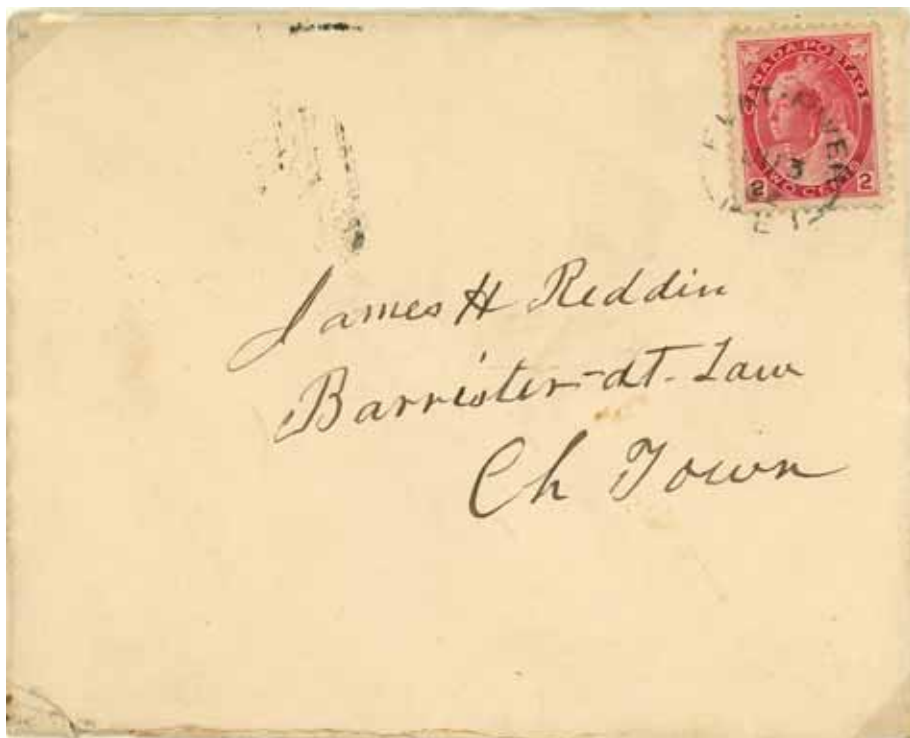 CANADA POSTAGE
2 TWO CENTS 2
James H Reddin
Barrister-At-Law
Ch Town